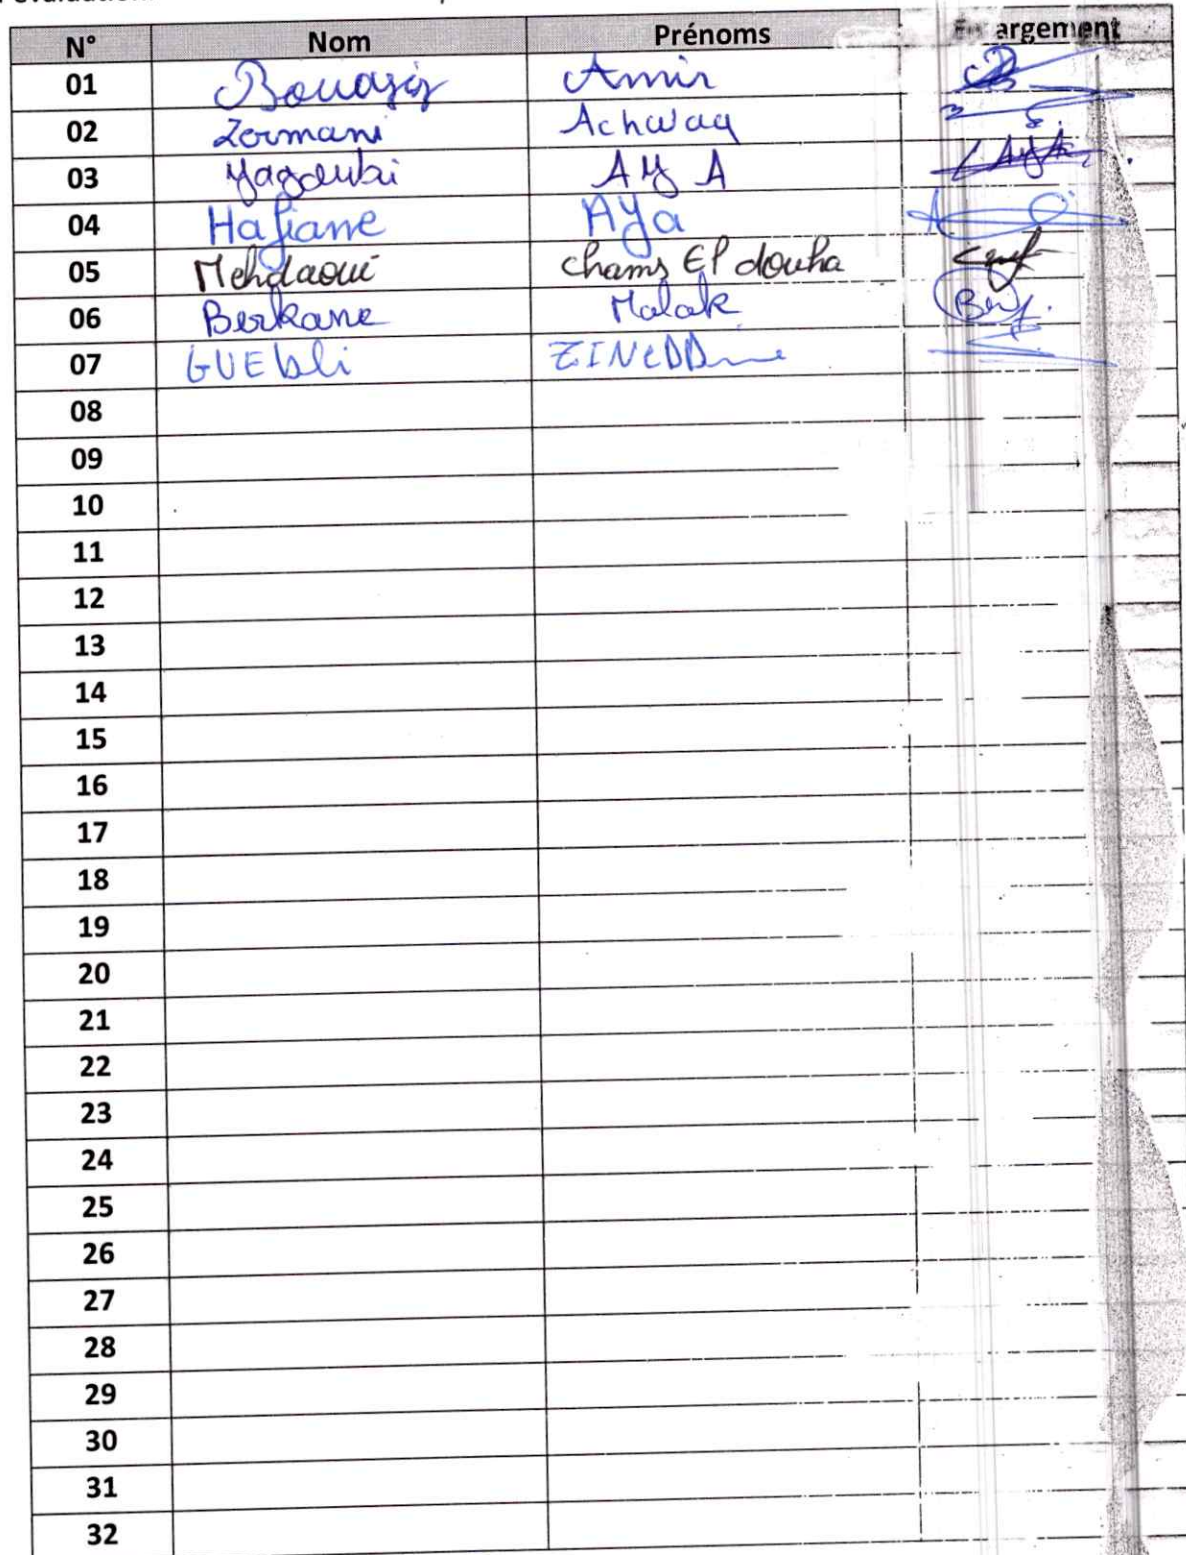 N° Nom Prénoms argement
01 Bouaziz Amir
02 Zermani Achwaq
03 Yagoubi AYA
04 Hafiane AYa
05 Mehdaoui chams El douha
06 Berkane Malak
07 GUEbli ZINeDDine
08
09
10
11
12
13
14
15
16
17
18
19
20
21
22
23
24
25
26
27
28
29
30
31
32